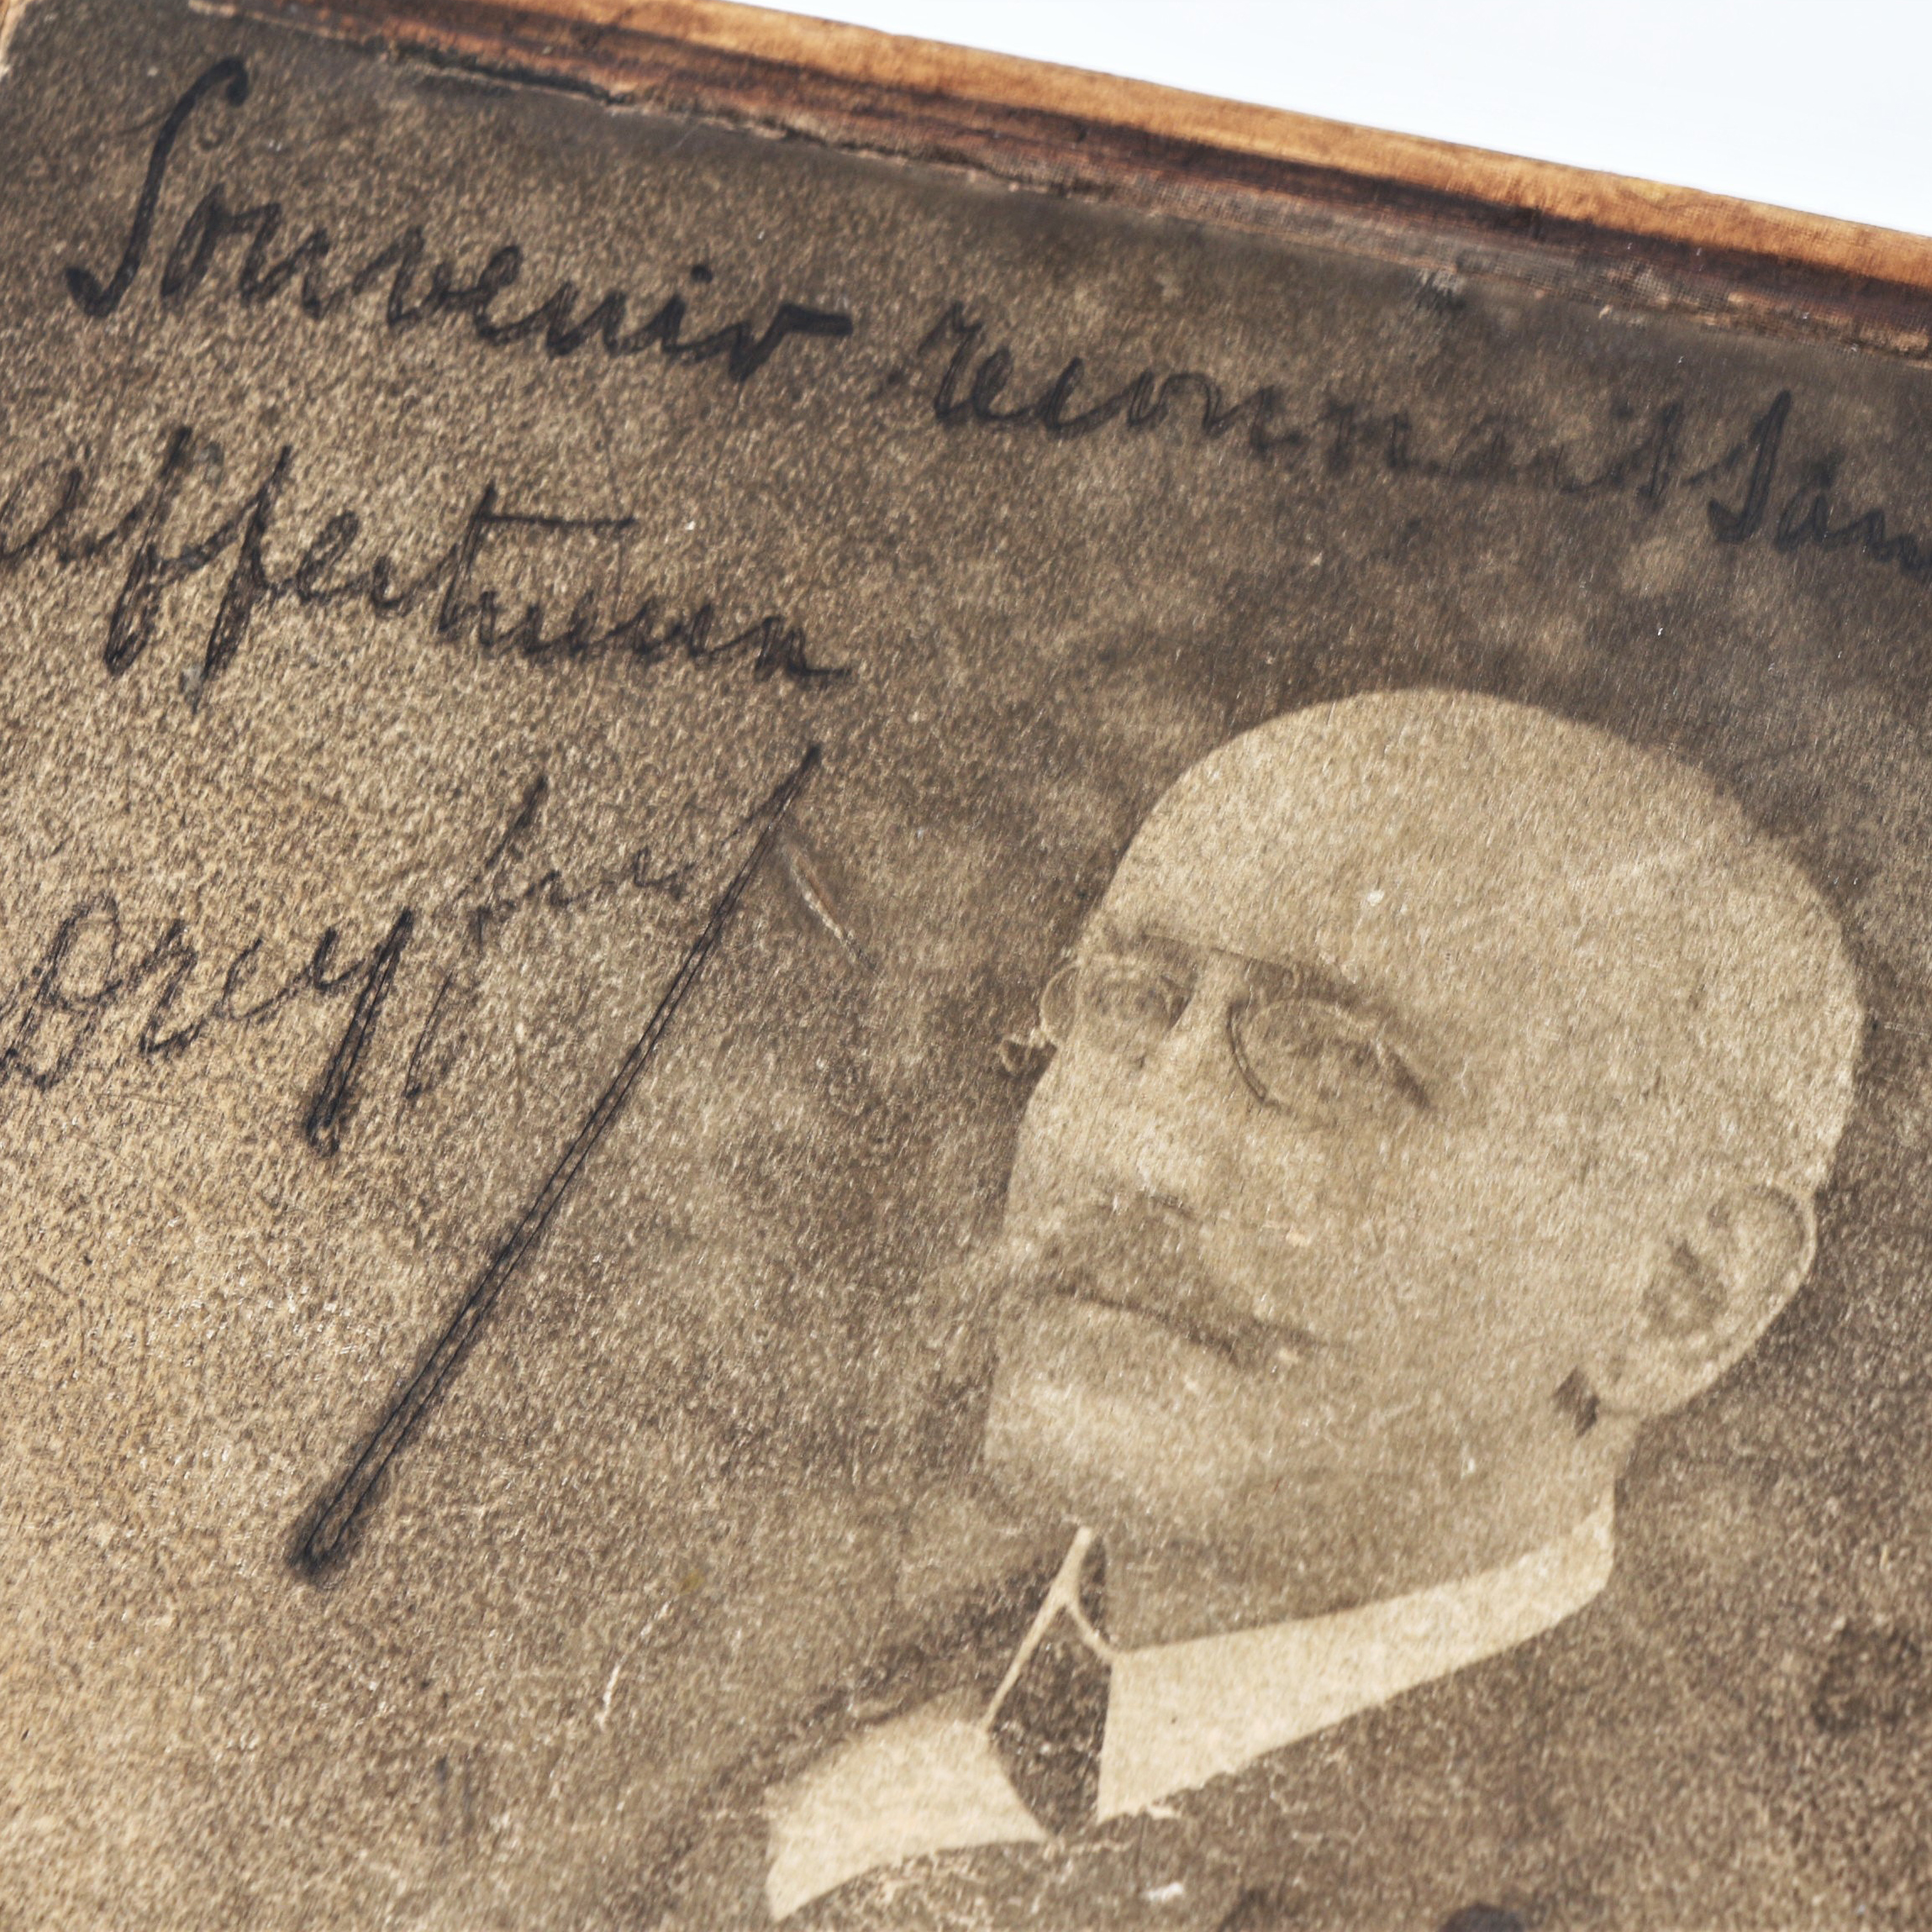 Souvenir reconnaissan
affectueux
Dreyfus